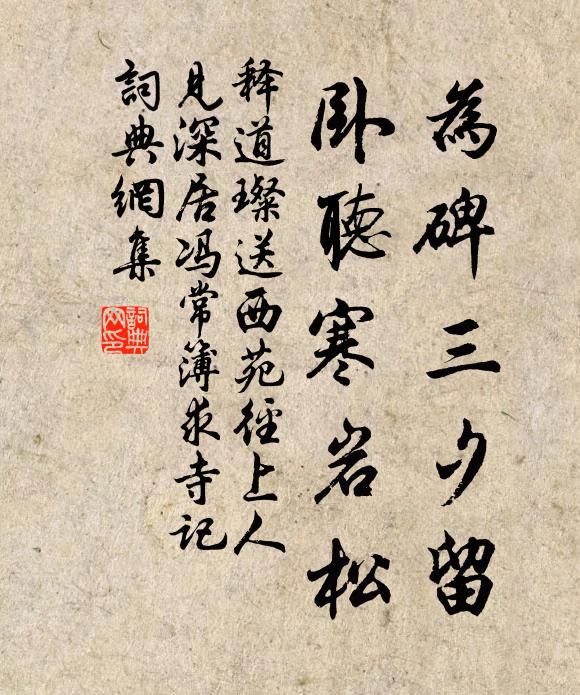 為碑三夕留
卧聽寒岩松
释道璨送西苑徑上人
見深居冯常簿求寺記
詞典網集
詞典
网印